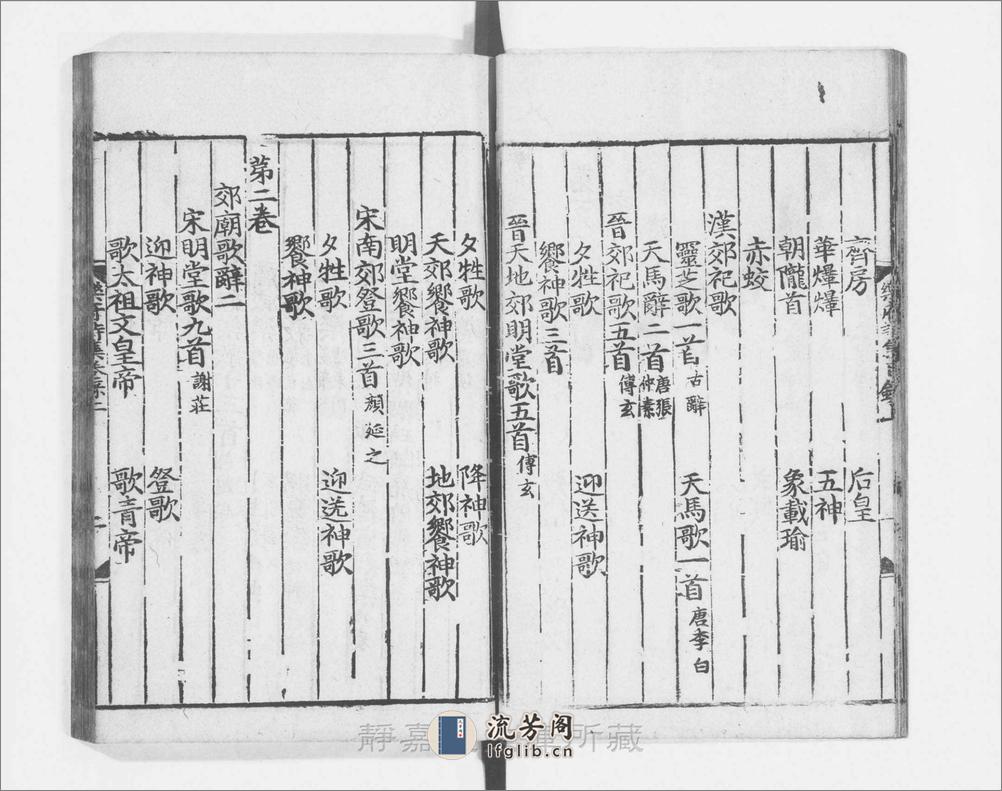 齊房　后皇
華爗爗　五神
朝隴首　象載瑜
赤蛟
漢郊祀歌
靈芝歌一首 古辭　天馬歌一首 唐李白
天馬辭二首 唐張仲素
晉郊祀歌五首 傅玄
夕牲歌　迎送神歌
饗神歌三首
晉天地郊明堂歌五首 傅玄
夕牲歌　降神歌
天郊饗神歌　地郊饗神歌
明堂饗神歌
宋南郊登歌三首 顏延之
夕牲歌　迎送神歌
饗神歌
第二卷
郊廟歌辭二
宋明堂歌九首 謝莊
迎神歌　登歌
歌太祖文皇帝　歌青帝
流芳阁
lfglib.cn
靜嘉
所藏